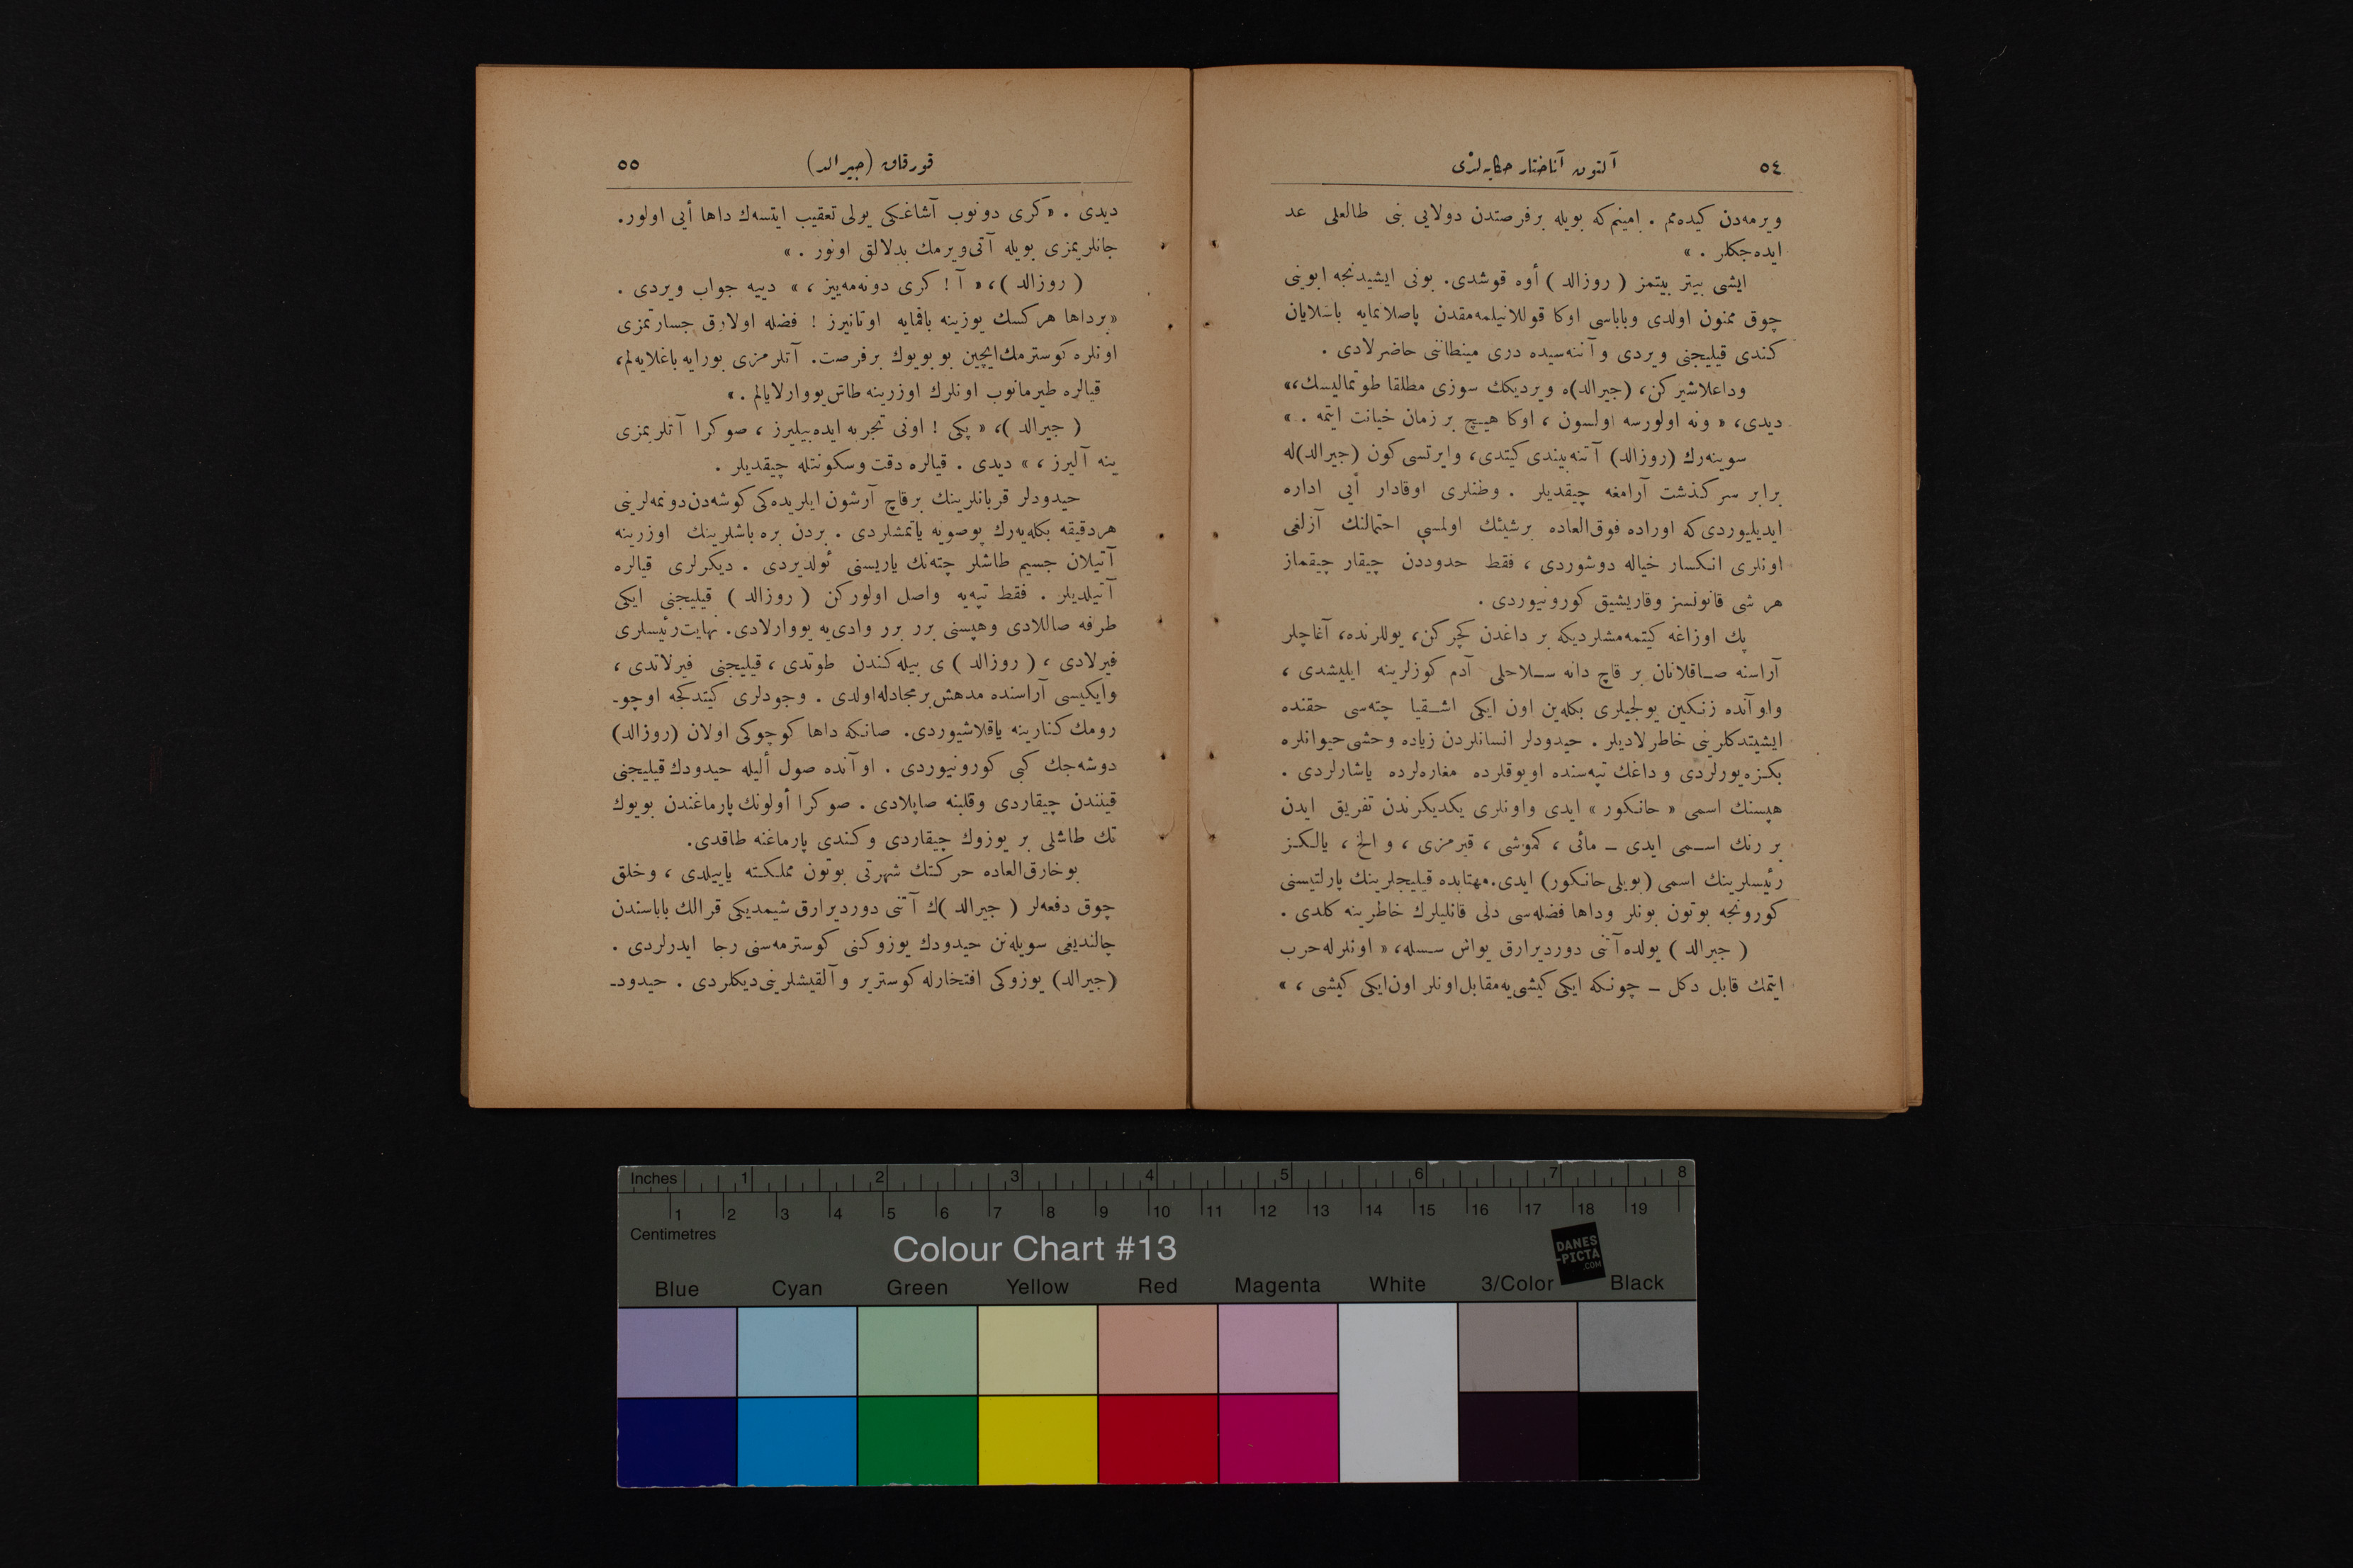 ٥٤
آلتون آناختار حكايه‌لری
ويرمه‌دن كيده‌مم . امينم كه بويله برفرصتدن دولایی بنی طالعلی عد
ايده‌جكلر . »
ایشی بيتر بيتمز ( روزالد ) أوه قوشدی. بونی ايشيدنجه ابوينی
چوق ممنون اولدی وباباسی اوكا قوللانيلمه‌مقدن پاصلانمايه باشلايان
كندی قيليجنی ويردی وآننه‌سيده دری مينطاننی حاضرلادی .
وداعلاشيركن، (جيرالد)ه ويرديكك سوزی مطلقا طوتماليسك،»
ديدی، « ونه اولورسه اولسون ، اوكا هيچ بر زمان خيانت ايتمه . »
سوينه‌رك (روزالد) آتنه‌بيندی كيتدی، وايرتسی كون (جيرالد)له
برابر سركذشت آرامغه چيقديلر . وطنلری اوقادار أیی اداره
ايديليوردی‌كه اوراده فوق‌العاده برشيئك اولمسی احتمالنك آزلغی
اونلری انكسار خياله دوشوردی ، فقط حدوددن چيقار چيقماز
هر شی قانونسز وقاريشيق كورونيوردی .
پك اوزاغه كيتمه‌مشلرديكه بر داغدن كچركن، يوللرنده، آغاچلر
آراسنه صاقلانان بر قاچ دانه سلاحلی آدم كوزلرينه ايليشدی ،
واو آنده زنكين يولجيلری بكله‌ين اون ايكی اشقيا چته‌سی حقنده
ايشيتدكلرنی خاطرلاديلر . حيدودلر انسانلردن زياده وحشی حيوانلره
بكزه‌يورلردی وداغك تپه‌سنده اويوقلرده مغاره‌لرده ياشارلردی .
هپسنك اسمی « حانكور » ايدی واونلری يكديكرندن تفريق ايدن
بر رنك اسمی ايدی ــ مائی ، كموشی ، قيرمزی ، و الخ ، يالكز
رئيسلرينك اسمی (بويلی حانكور) ايدی. مهتابده قيليجلرينك پارلتيسنی
كورونجه بوتون بونلر وداها فضله‌سی دلی قانليلرك خاطرينه كلدی .
( جيرالد ) يولده آتنی دورديرارق يواش سسله، « اونلرله حرب
ايتمك قابل دكل ــ چونكه ايكی كيشی‌يه مقابل اونلر اون‌ايكی كيشی ، »
قورقاق (جيرالد)
٥٥
ديدی . « كری دونوب آشاغكی يولی تعقيب ايتسه‌ك داها أیی اولور.
جانلريمزی بويله آتی‌ويرمك بدلالق اونور . »
( روزالد )، « آ ! كری دونه‌مه‌ييز ، » دييه جواب ويردی .
« برداها هركسك يوزينه باقمايه اوتانيرز ! فضله اولارق جسارتمزی
اونلره كوسترمك‌ايچين بو بويوك برفرصت. آتلرمزی بورايه باغلايه‌لم،
قيالره طيرمانوب اونلرك اوزرينه طاش يووارلايالم . »
( جيرالد )، « پكی ! اونی تجربه ايده‌بيليرز ، صوكرا آتلريمزی
ينه آليرز ، » ديدی . قيالره دقت وسكونتله چيقديلر .
حيدودلر قربانلرينك برقاچ آرشون ايلريده‌كی كوشه‌دن دونمه‌لرينی
هردقيقه بكله‌يه‌رك پوصويه ياتمشلردی . بردن بره باشلرينك اوزرينه
آتيلان جسيم طاشلر چته‌نك ياريسنی ئولديردی . ديكرلری قيالره
آتيلديلر . فقط تپه‌يه واصل اولوركن ( روزالد ) قيليجنی ايكی
طرفه صاللادی وهپسنی برر برر وادی‌يه يووارلادی. نهايت رئيسلری
فيرلادی ، ( روزالد ) ی بيله‌كندن طوتدی ، قيليجنی فيرلاتدی ،
وايكيسی آراسنده مدهش برمجادله اولدی . وجودلری كيتدكجه اوچو-
رومك كنارينه ياقلاشيوردی. صانكه داها كوچوكی اولان (روزالد)
دوشه‌جك كبی كورونيوردی . او آنده صول أليله حيدودك قيليجنی
قينندن چيقاردی وقلبنه صاپلادی . صوكرا أولونك پارماغندن بويوك
تك طاشلی بر يوزوك چيقاردی وكندی پارماغنه طاقدی.
بوخارق‌العاده حركتك شهرتی بوتون مملكته ياييلدی ، وخلق
چوق دفعه‌لر ( جيرالد )ك آتنی دورديرارق شيمديكی قرالك باباسندن
چالنديغی سويله‌نن حيدودك يوزوكنی كوسترمه‌سنی رجا ايدرلردی .
(جيرالد) يوزوكی افتخارله كوسترير وآلقيشلرينی ديكلردی . حيدود-
Inches 1 2 3 4 5 6 7 8
1 2 3 4 5 6 7 8 9 10 11 12 13 14 15 16 17 18 19
Centimetres
Colour Chart #13
DANES
-PICTA
.COM
Blue Cyan Green Yellow Red Magenta White 3/Color Black